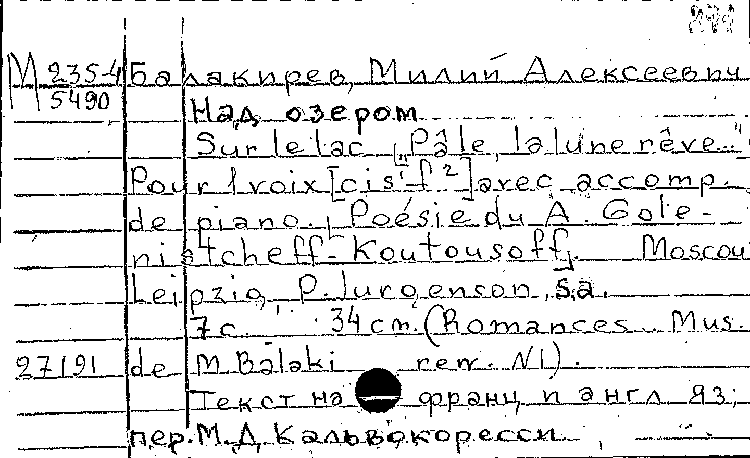 M 2354 Балакирев, Милий Алексеевич
5490 Над озером
Sur le lac „Pâle, la lune rêve..."
Pour 1 voix [cis¹-f²] avec accomp.
de piano. Poésie du A. Gole-
nistcheff-Koutousoff. Moscou
Leipzig, P. Jurgenson, s.a.
7 с. 34 cm. (Romances. Mus.
27191 de M. Balaki rew. N1).
Текст на франц и англ яз;
пер. М.Д. Кальвокоресси